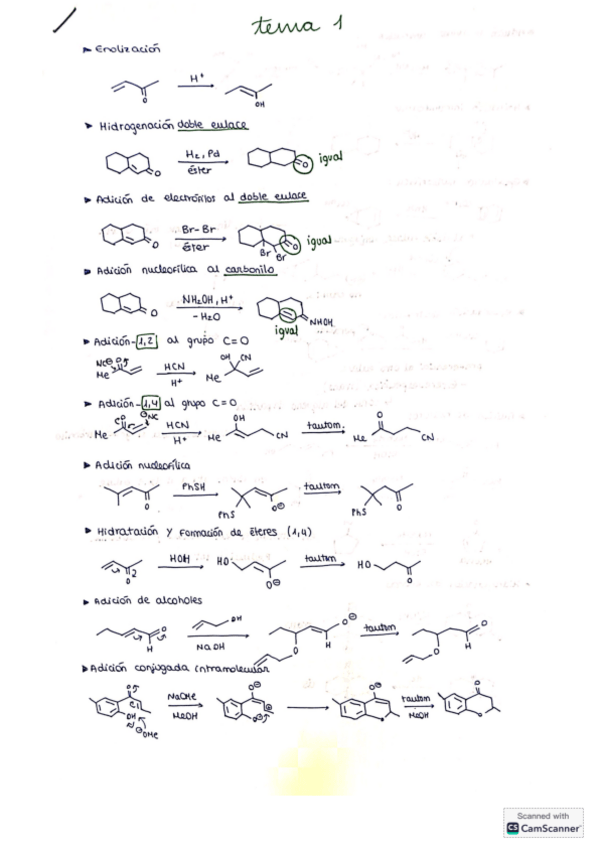 tema 1
► Enolización
H⁺
O
OH
► Hidrogenación doble enlace
H₂, Pd
éster
O
O
igual
► Adición de electrófilos al doble enlace
Br-Br
éster
O
O
igual
Br
Br
► Adición nucleofílica al carbonilo
NH₂OH, H⁺
-H₂O
O
NHOH
igual
► Adición-1,2 al grupo C=O
NC⊖
Me
HCN
H⁺
OH CN
Me
► Adición-1,4 al grupo C=O
⊖NC
O
Me
HCN
H⁺
OH
Me
CN
tautom.
O
Me
CN
► Adición nucleofílica
O
PhSH
PhS
O⊖
tautom
PhS
O
► Hidratación y Formación de éteres (1,4)
O
HOH
HO
O⊖
tautom
HO
O
► Adición de alcoholes
O
H
OH
NaOH
O⊖
H
O
tautom
O
H
O
► Adición conjugada intramolecular
O
OH
⊖OMe
NaOMe
MeOH
O⊖
O⊖
O⊖
tautom
MeOH
O
O
Scanned with
CS CamScanner